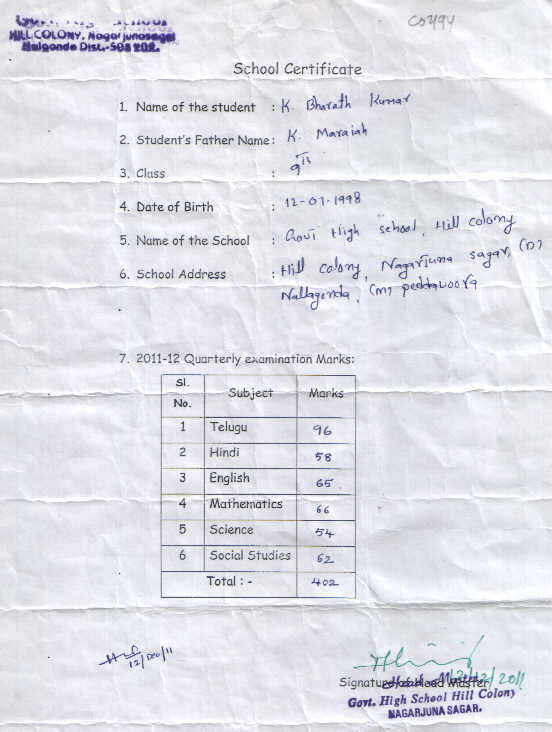 CO494
HILL COLONY, Nagarjunasagar
Nalgonda Dist.-508 202.
School Certificate
1. Name of the student : K. Bharath Kumar
2. Student's Father Name : K. Maraiah
3. Class : 9th
4. Date of Birth : 12-07-1998
5. Name of the School : Govt High school, Hill colony
6. School Address : Hill colony, Nagarjuna sagar, (D)
Nallagonda, (M) peddavoora
7. 2011-12 Quarterly examination Marks:
Sl. No. Subject Marks
1 Telugu 96
2 Hindi 58
3 English 65
4 Mathematics 66
5 Science 54
6 Social Studies 62
Total : - 402
12/Dec/11
12/12/2011
Signature of Head Master
Govt. High School Hill Colony
NAGARJUNA SAGAR.